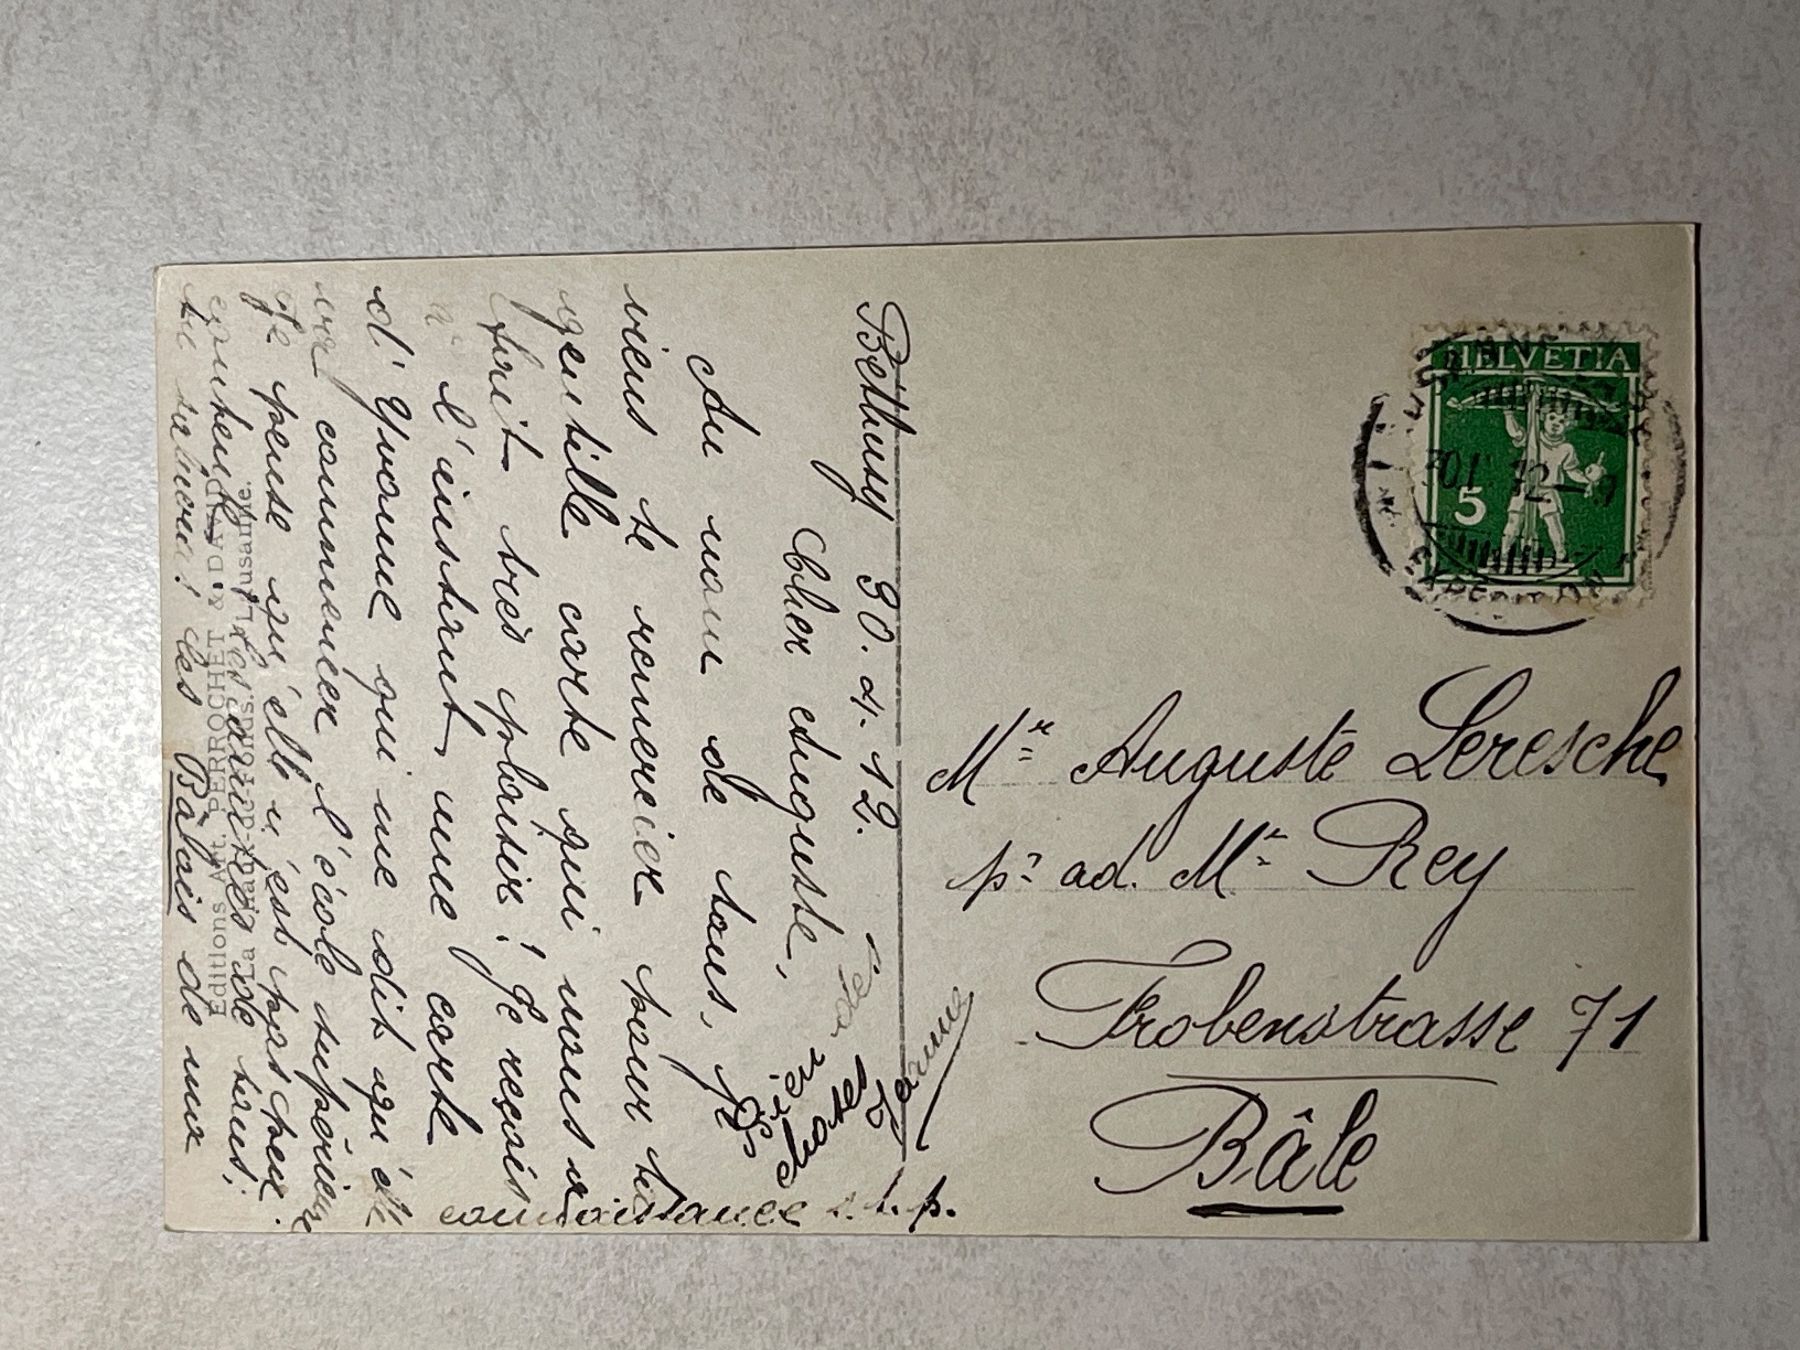 Bethusy 30. 4. 12.
Cher Auguste,
Au nom de tous, je
viens te remercier pour ta
gentille carte qui nous a
fait très plaisir! Je reçois
à l'instant une carte
d'Yvonne qui me dit qu'elle
va commencer l'école supérieure
Je pense qu'elle n'est pas peu
contente. Les amitiés de tous;
tu salueras les Bâlois de ma
connaissance s. t. p.
Bien des
choses
Jeanne
Editions Art. PERROCHET & DAVID
La Chaux-de-Fonds. Lausanne.
HELVETIA
5
LAUSANNE
30.IV.12
Mr Auguste Leresche
pr ad. Mr Rey
Frobenstrasse 71
Bâle